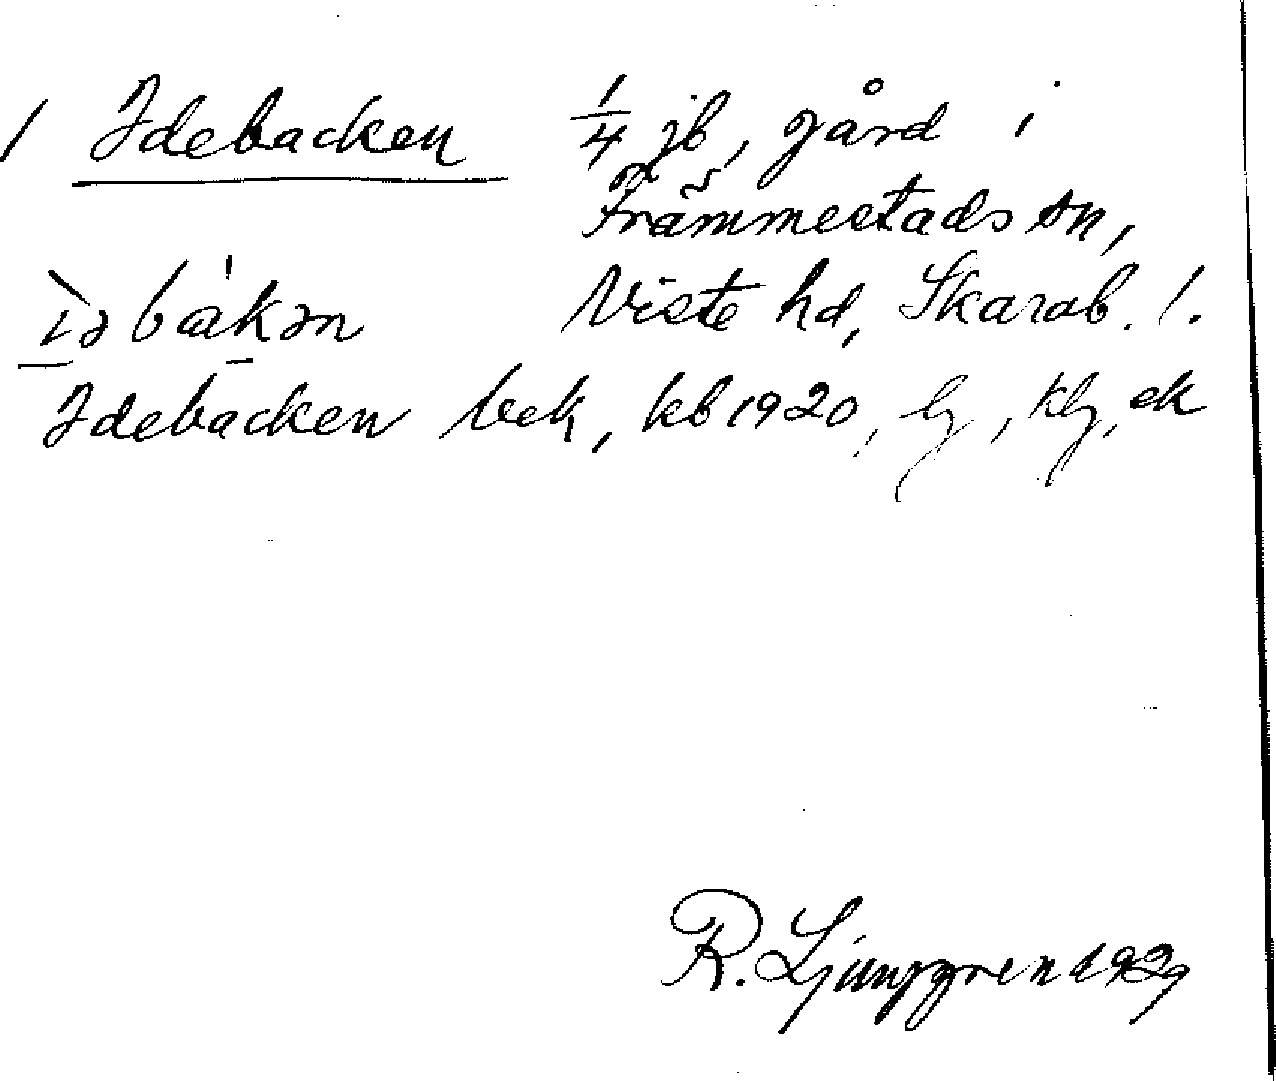 1 Idebacken 1/4 jb, gård i
Främmestads sn,
ìəbákən Viste hd, Skarab. l.
Idebacken bek, kb 1920, lg, klg, ek
R. Ljunggren 1929